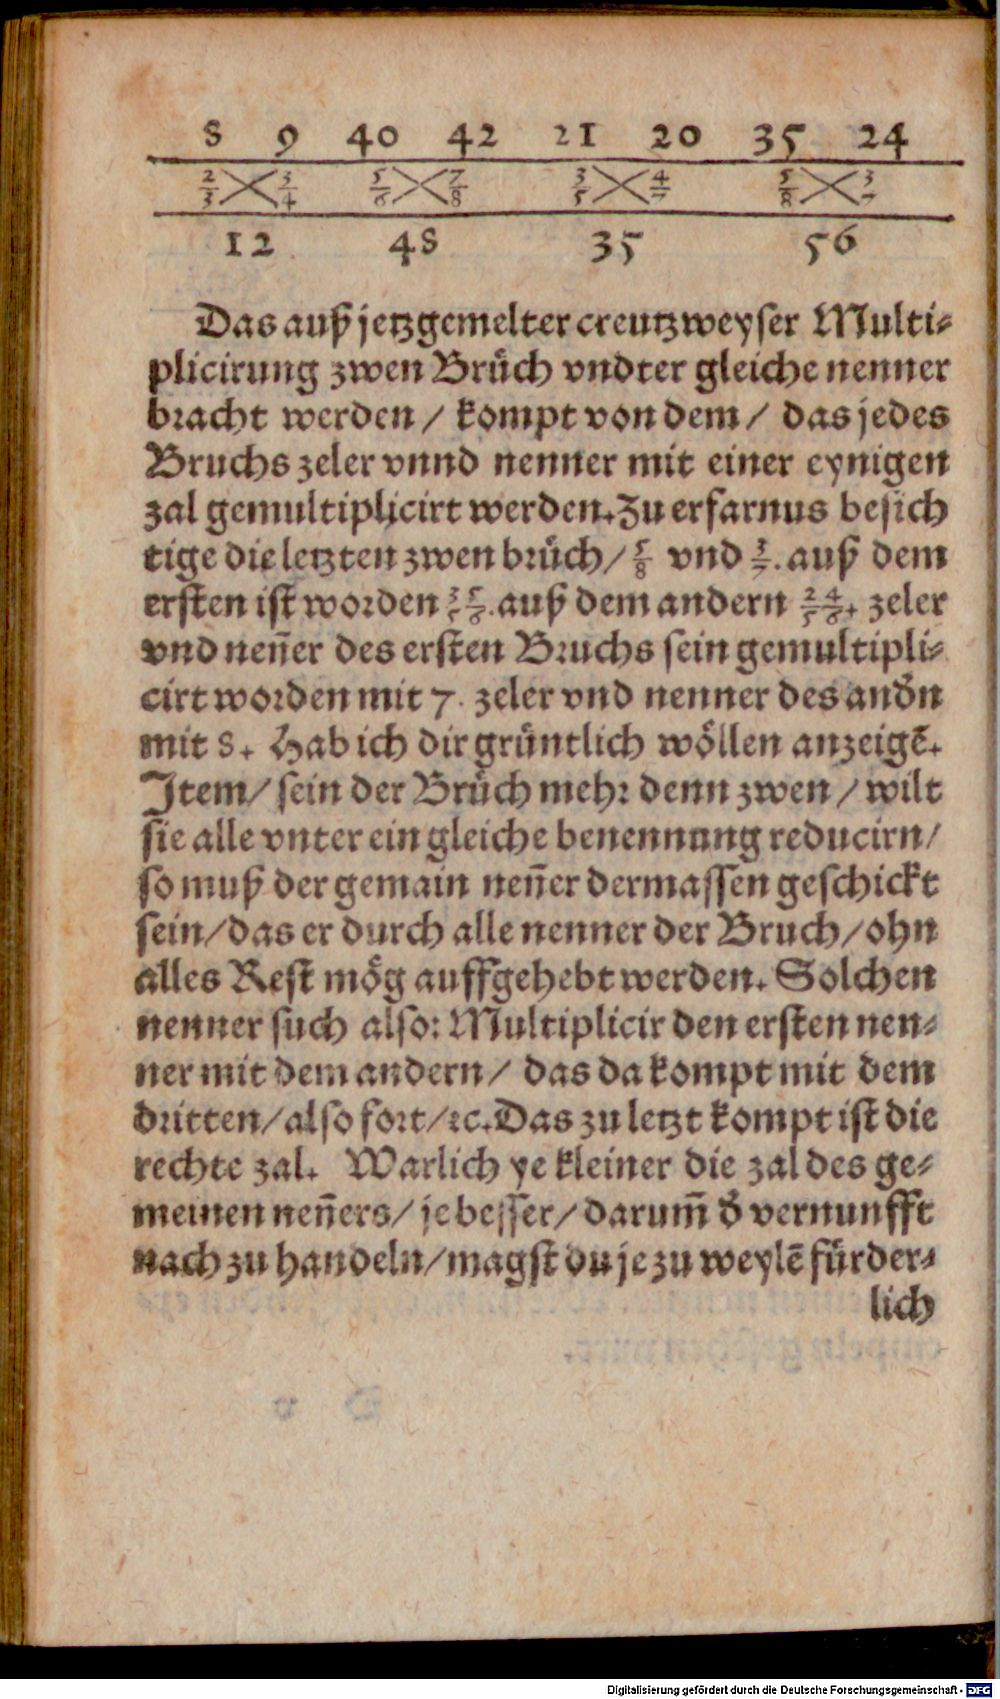 8 9 40 42 21 20 35 24
2/3 3/4 5/6 7/8 3/5 4/7 5/8 3/7
12 48 35 56
Das auß jetzgemelter creutzweyser Multi⸗
plicirung zwen Bruͤch vndter gleiche nenner
bracht werden / kompt von dem / das jedes
Bruchs zeler vnnd nenner mit einer eynigen
zal gemultiplicirt werden. Zu erfarnus besich
tige die letzten zwen bruͤch / 5/8 vnd 3/7. auß dem
ersten ist worden 35/56. auß dem andern 24/56. zeler
vnd neñer des ersten Bruchs sein gemultipli⸗
cirt worden mit 7. zeler vnd nenner des andn̄
mit 8. Hab ich dir gruͤntlich woͤllen anzeigẽ.
Item / sein der Bruͤch mehr denn zwen / wilt
sie alle vnter ein gleiche benennung reducirn /
so muß der gemain neñer dermassen geschickt
sein / das er durch alle nenner der Bruch / ohn
alles Rest moͤg auffgehebt werden. Solchen
nenner such also: Multiplicir den ersten nen⸗
ner mit dem andern / das da kompt mit dem
dritten / also fort / ꝛc. Das zu letzt kompt ist die
rechte zal. Warlich ye kleiner die zal des ge⸗
meinen neñers / je besser / darum̃ đ vernunfft
nach zu handeln / magst du je zu weylẽ fuͤrder⸗
lich
Digitalisierung gefördert durch die Deutsche Forschungsgemeinschaft - DFG